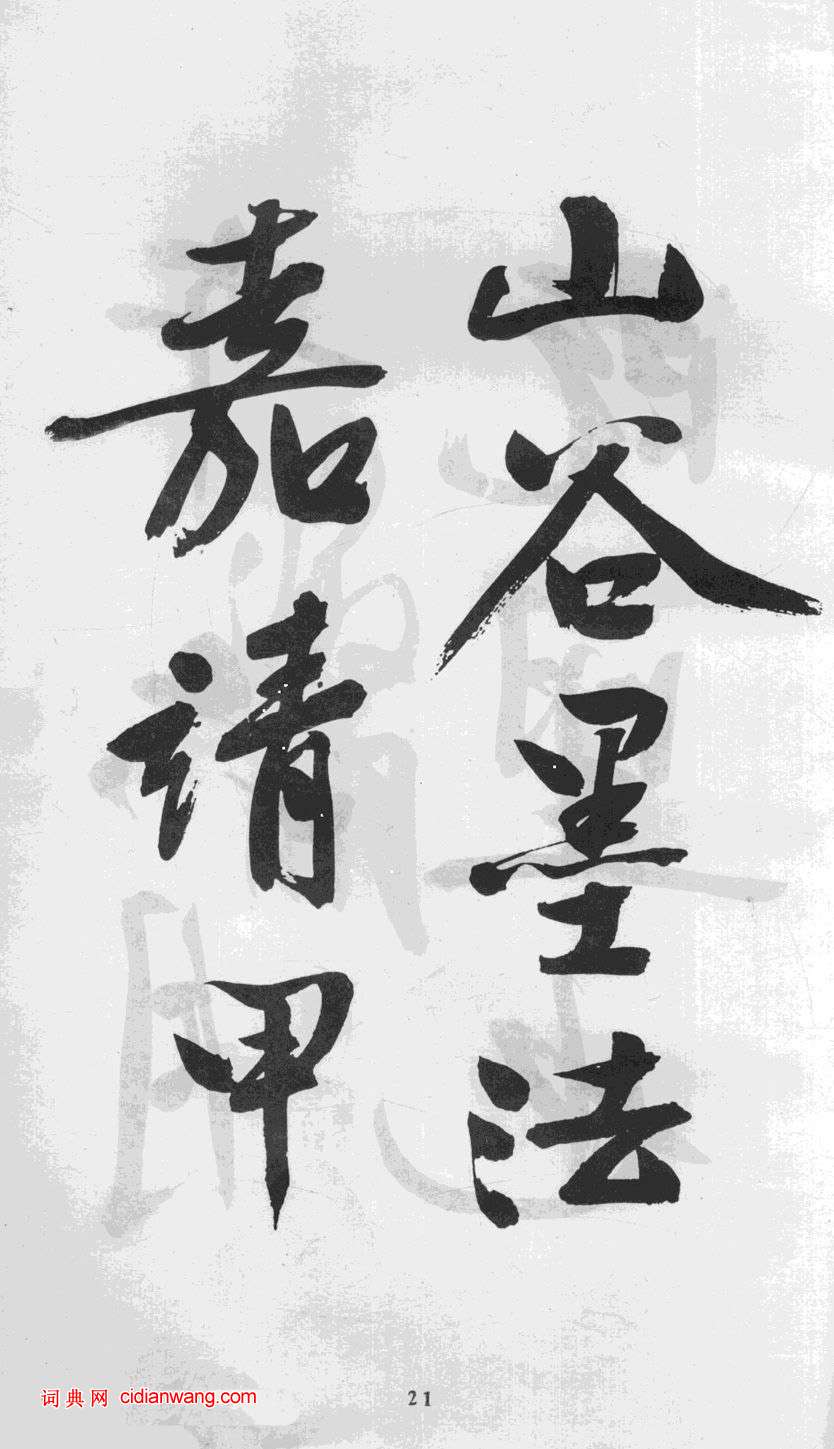 山谷墨法
嘉請甲
词典网 cidianwang.com
21